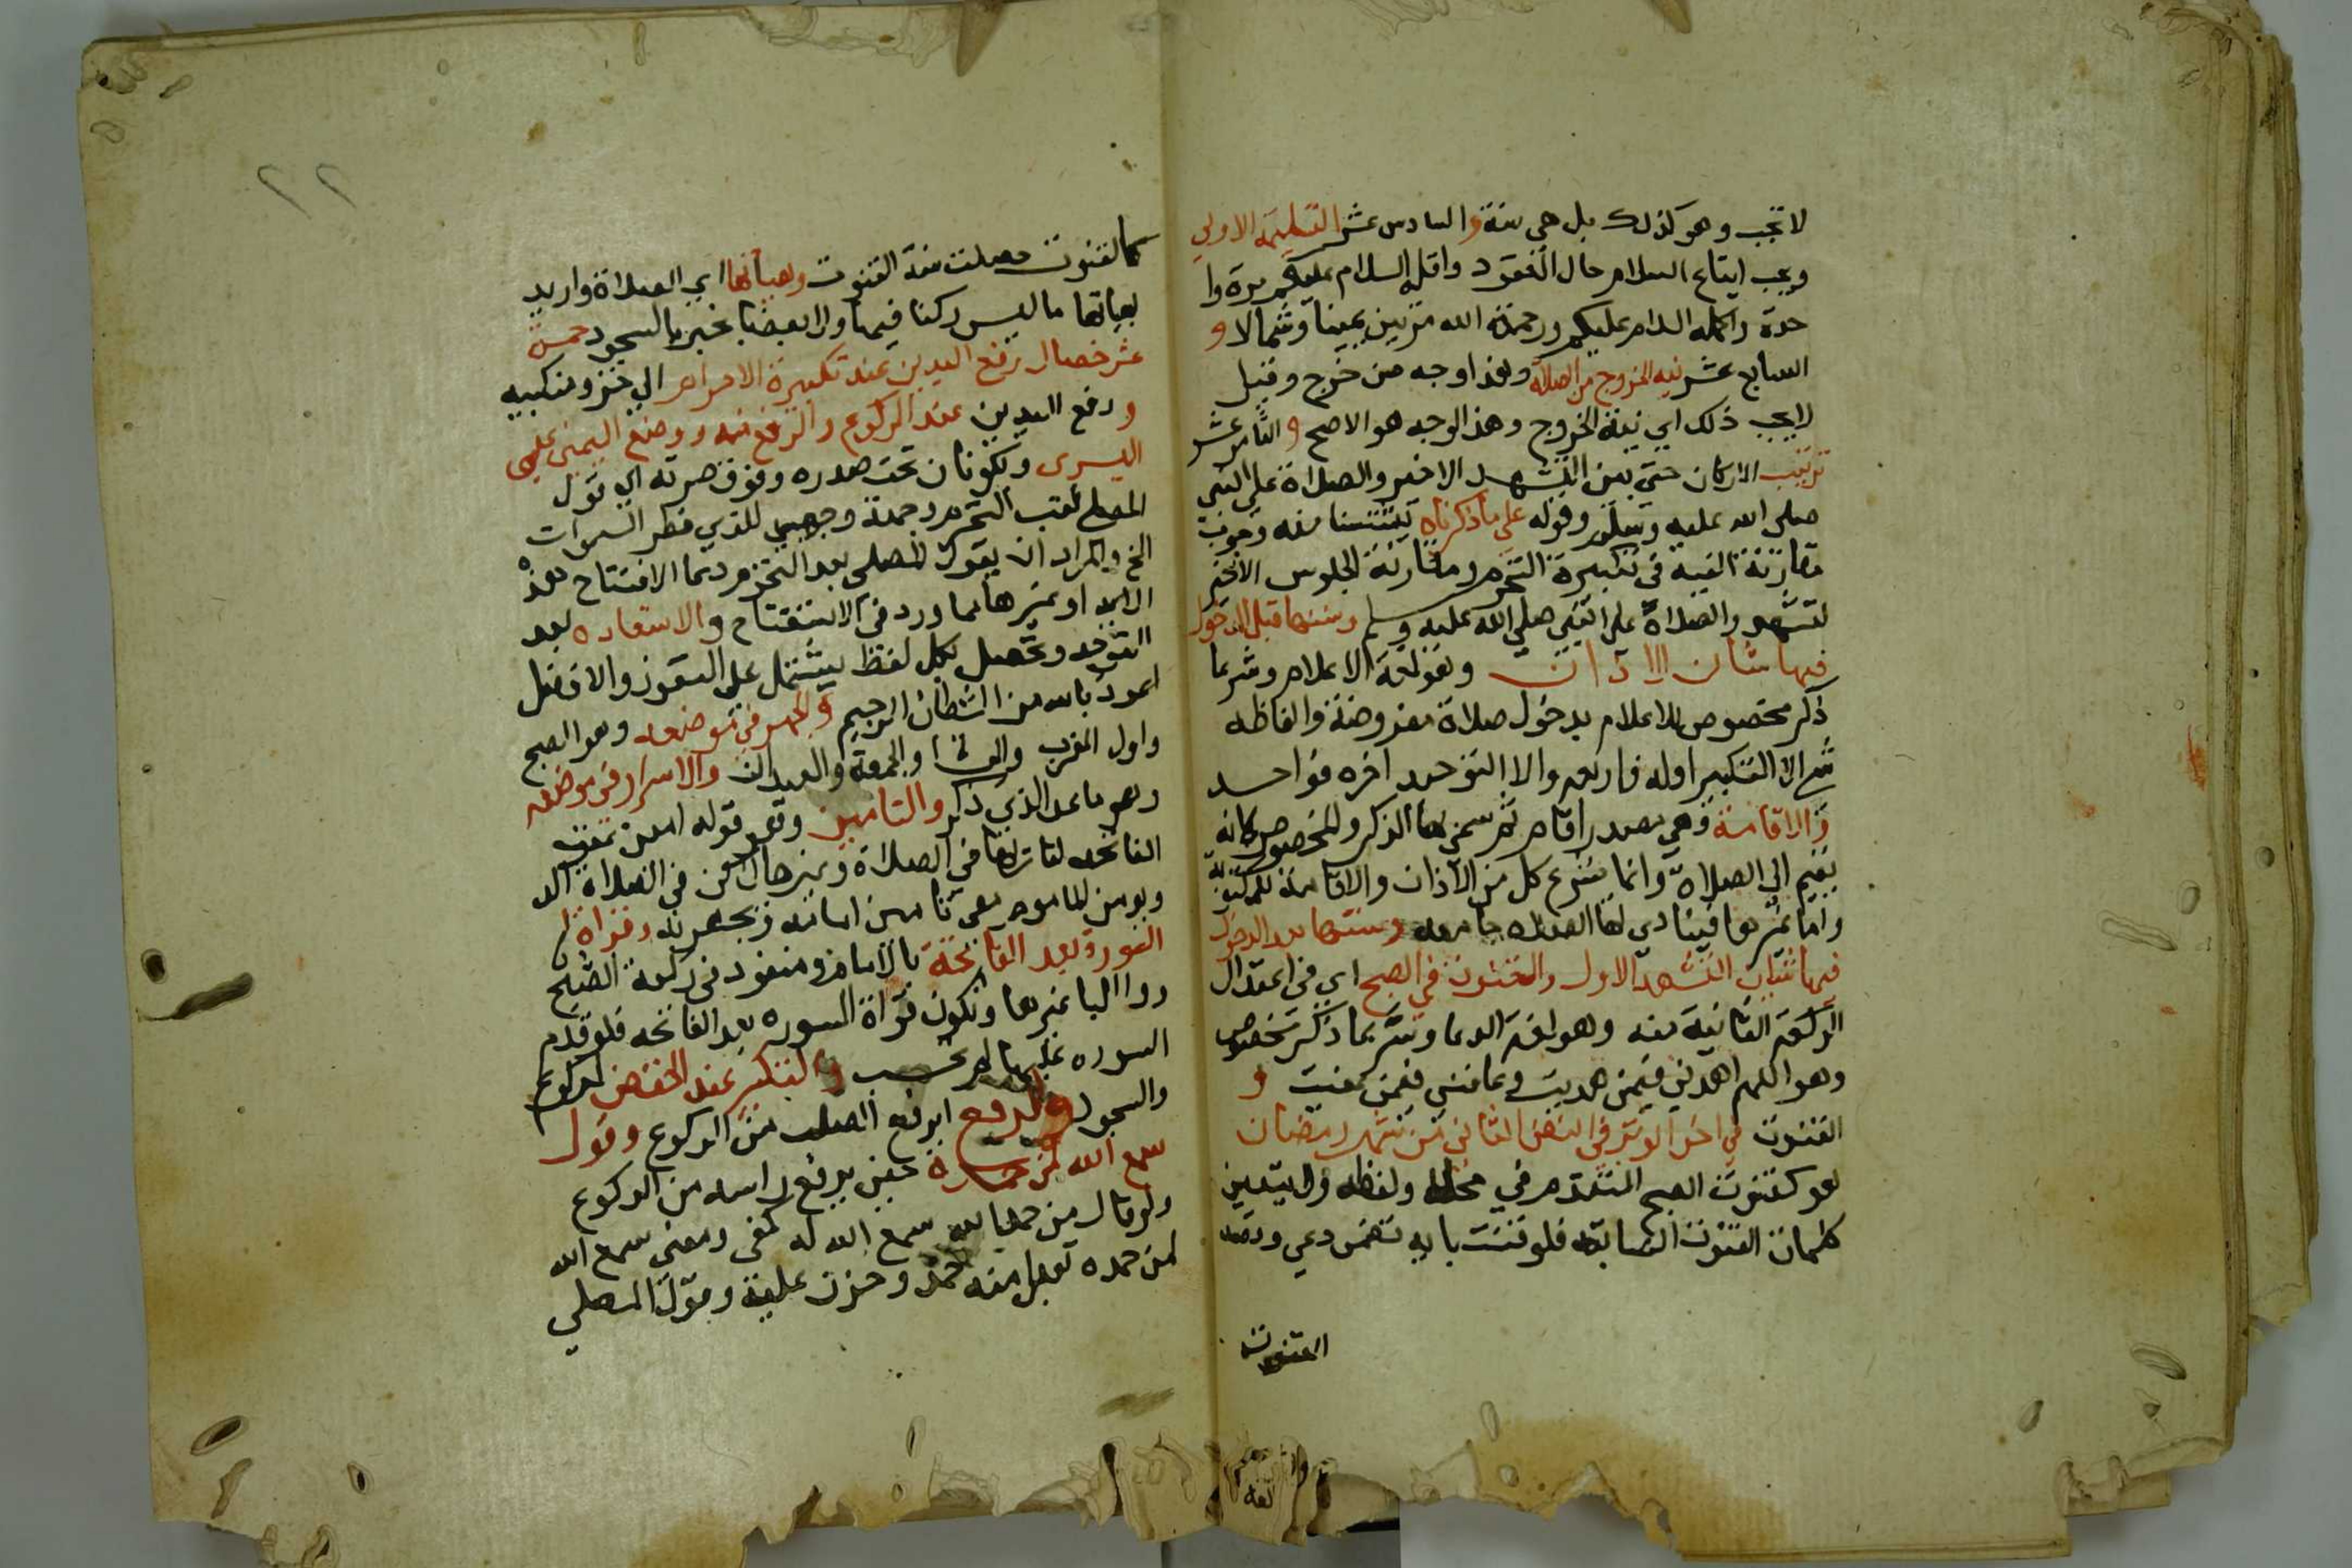 لا تجب وهو كذلك بل هي سنة والسادس عشر التسليمة الاولى
ويجب ايقاع السلام حال القعود واقله السلام عليكم مرة وا
حدة واكمله السلام عليكم ورحمة الله مرتين يمينا وشمالا و
السابع عشر نيه الخروج من الصلاة وهذا وجه مرجوح وقيل
لا يجب ذلك اي نية الخروج وهذا الوجه هو الاصح والثامن عشر
ترتيب الاركان حتى بين التشهد الاخير والصلاة على النبي
صلى الله عليه وسلم وقوله على ما ذكرناه يستثنا منه وجوب
مقارنة النية في تكبيرة التحرم ومقارنة الجلوس الاخير
لتشهد والصلاة على النبي صلى الله عليه وسلم وسننها قبل الدخول
فيها شيان الاذان وهو لغة الاعلام وشرعا
ذكر مخصوص للاعلام بدخول صلاة مفروضة والفاظه
الا التكبير اوله فاربع والا التوحيد اخره فواحد
والاقامة وهي مصدر اقام ثم سمي بها الذكر المخصوص لانه
يقيم الي الصلاة وانما يشرع كل من الاذان والاقامة للمكتوبة
واما غيرها فينادي لها الصلاه جامعه وسننها بعد الدخول
فيها شيان التشهد الاول والقنوت في الصبح اي في اعتدال
الركعة الثانية منه وهو لغة الدعا وشرعا ذكر مخصوص
وهو اللهم اهدني فيمن هديت وعافني فيمن عافيت و
القنوت في اخر الوتر في النصف الثاني من شهر رمضان
وهو كقنوت الصبح المتقدم في محله ولفظه ولا يتعين
كلمات القنوت السابقه فلو قنت باية تتضمن دعي وقصد
القنوت
٢٢
كالقنوت حصلت سنة القنوت وهيأتها اي الصلاة واريد
بهياتها ما ليس ركنا فيها ولا بعضا يجبر بالسجود خمس
عشر خصال رفع اليدين عند تكبيرة الاحرام الي حذو منكبيه
ورفع اليدين عند الركوع والرفع منه ووضع اليمنى على
اليسرى ويكونان تحت صدره وفوق صرته اي قول
المصلي عقب التحرم وجهت وجهي للذي فطر السموات
الخ والمراد ان يقول المصلي بعد التحرم دعا الافتتاح هذه
الاية او غيرها مما ورد في الاستفتاح والاستعاده بعد
التوجه وتحصل بكل لفظ يشتمل على التعوذ والافضل
اعوذ بالله من الشطان الرجيم والجهر في موضعه وهو الصبح
واول المغرب والعشا والجمعة والعيدان والاسرار في موضعه
وهو ما عدا الذي ذكر والتامين وهو قوله امين عقب
الفاتحه لقاريها في الصلاة وغيرها لكن في الصلاة اكد
ويومن الماموم مع تامين امامه ويجهر به وقراة
السورة بعد الفاتحة بالامام ومنفرد في ركعة الصبح
واوليا غيرها وتكون قراة السوره بعد الفاتحه فلو قدم
السوره عليها لم تحسب والتكبير عند الخفض للركوع
والسجود والرفع اي رفع الصلب من الركوع وقول
سمع الله لمن حمده حين يرفع راسه من الركوع
ولو قال من حمد الله سمع الله له كفى ومعنى سمع الله
لمن حمده تقبل منه حمده وقول المصلي